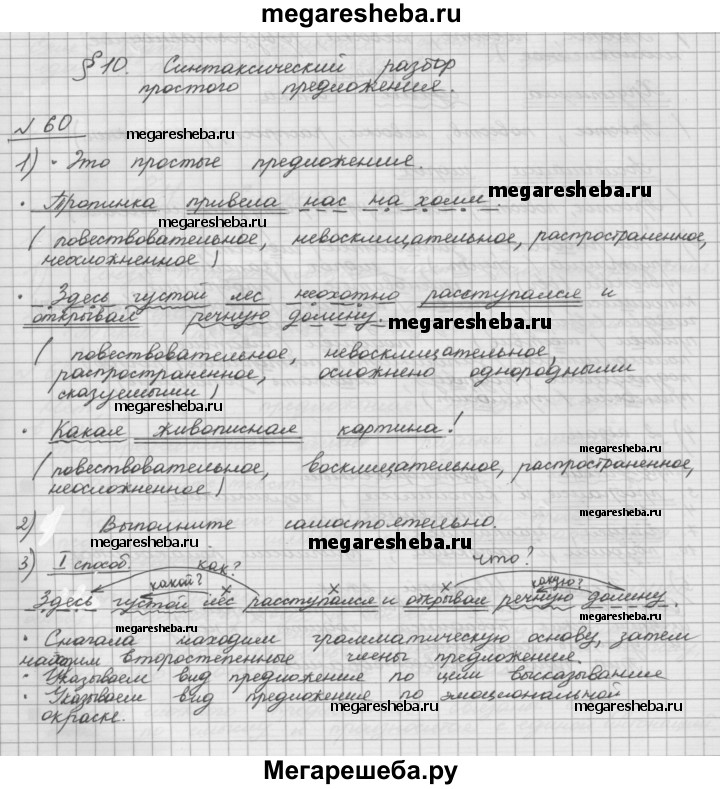 megaresheba.ru
§ 10. Синтаксический разбор
простого предложения.
№ 60
megaresheba.ru
1) • Это простые предложения.
megaresheba.ru
• Тропинка привела нас на холм.
megaresheba.ru
( повествовательное, невосклицательное, распространенное,
неосложненное )
• Здесь густой лес неохотно расступался и
открывал речную долину.
megaresheba.ru
( повествовательное, невосклицательное,
распространенное, осложнено однородными
сказуемыми )
megaresheba.ru
• Какая живописная картина!
megaresheba.ru
(повествовательное, восклицательное, распространенное,
неосложненное )
2) Выполните самостоятельно.
megaresheba.ru
megaresheba.ru
3) I способ. как? что?
какой? какую?
Здесь густой лес расступался и открывал речную долину.
megaresheba.ru
megaresheba.ru
• Сначала находим грамматическую основу, затем
найдим второстепенные члены предложения.
• Указываем вид предложения по цели высказывания
• Указываем вид предложения по эмоциональной
окраске.
megaresheba.ru
megaresheba.ru
Мегарешеба.ру